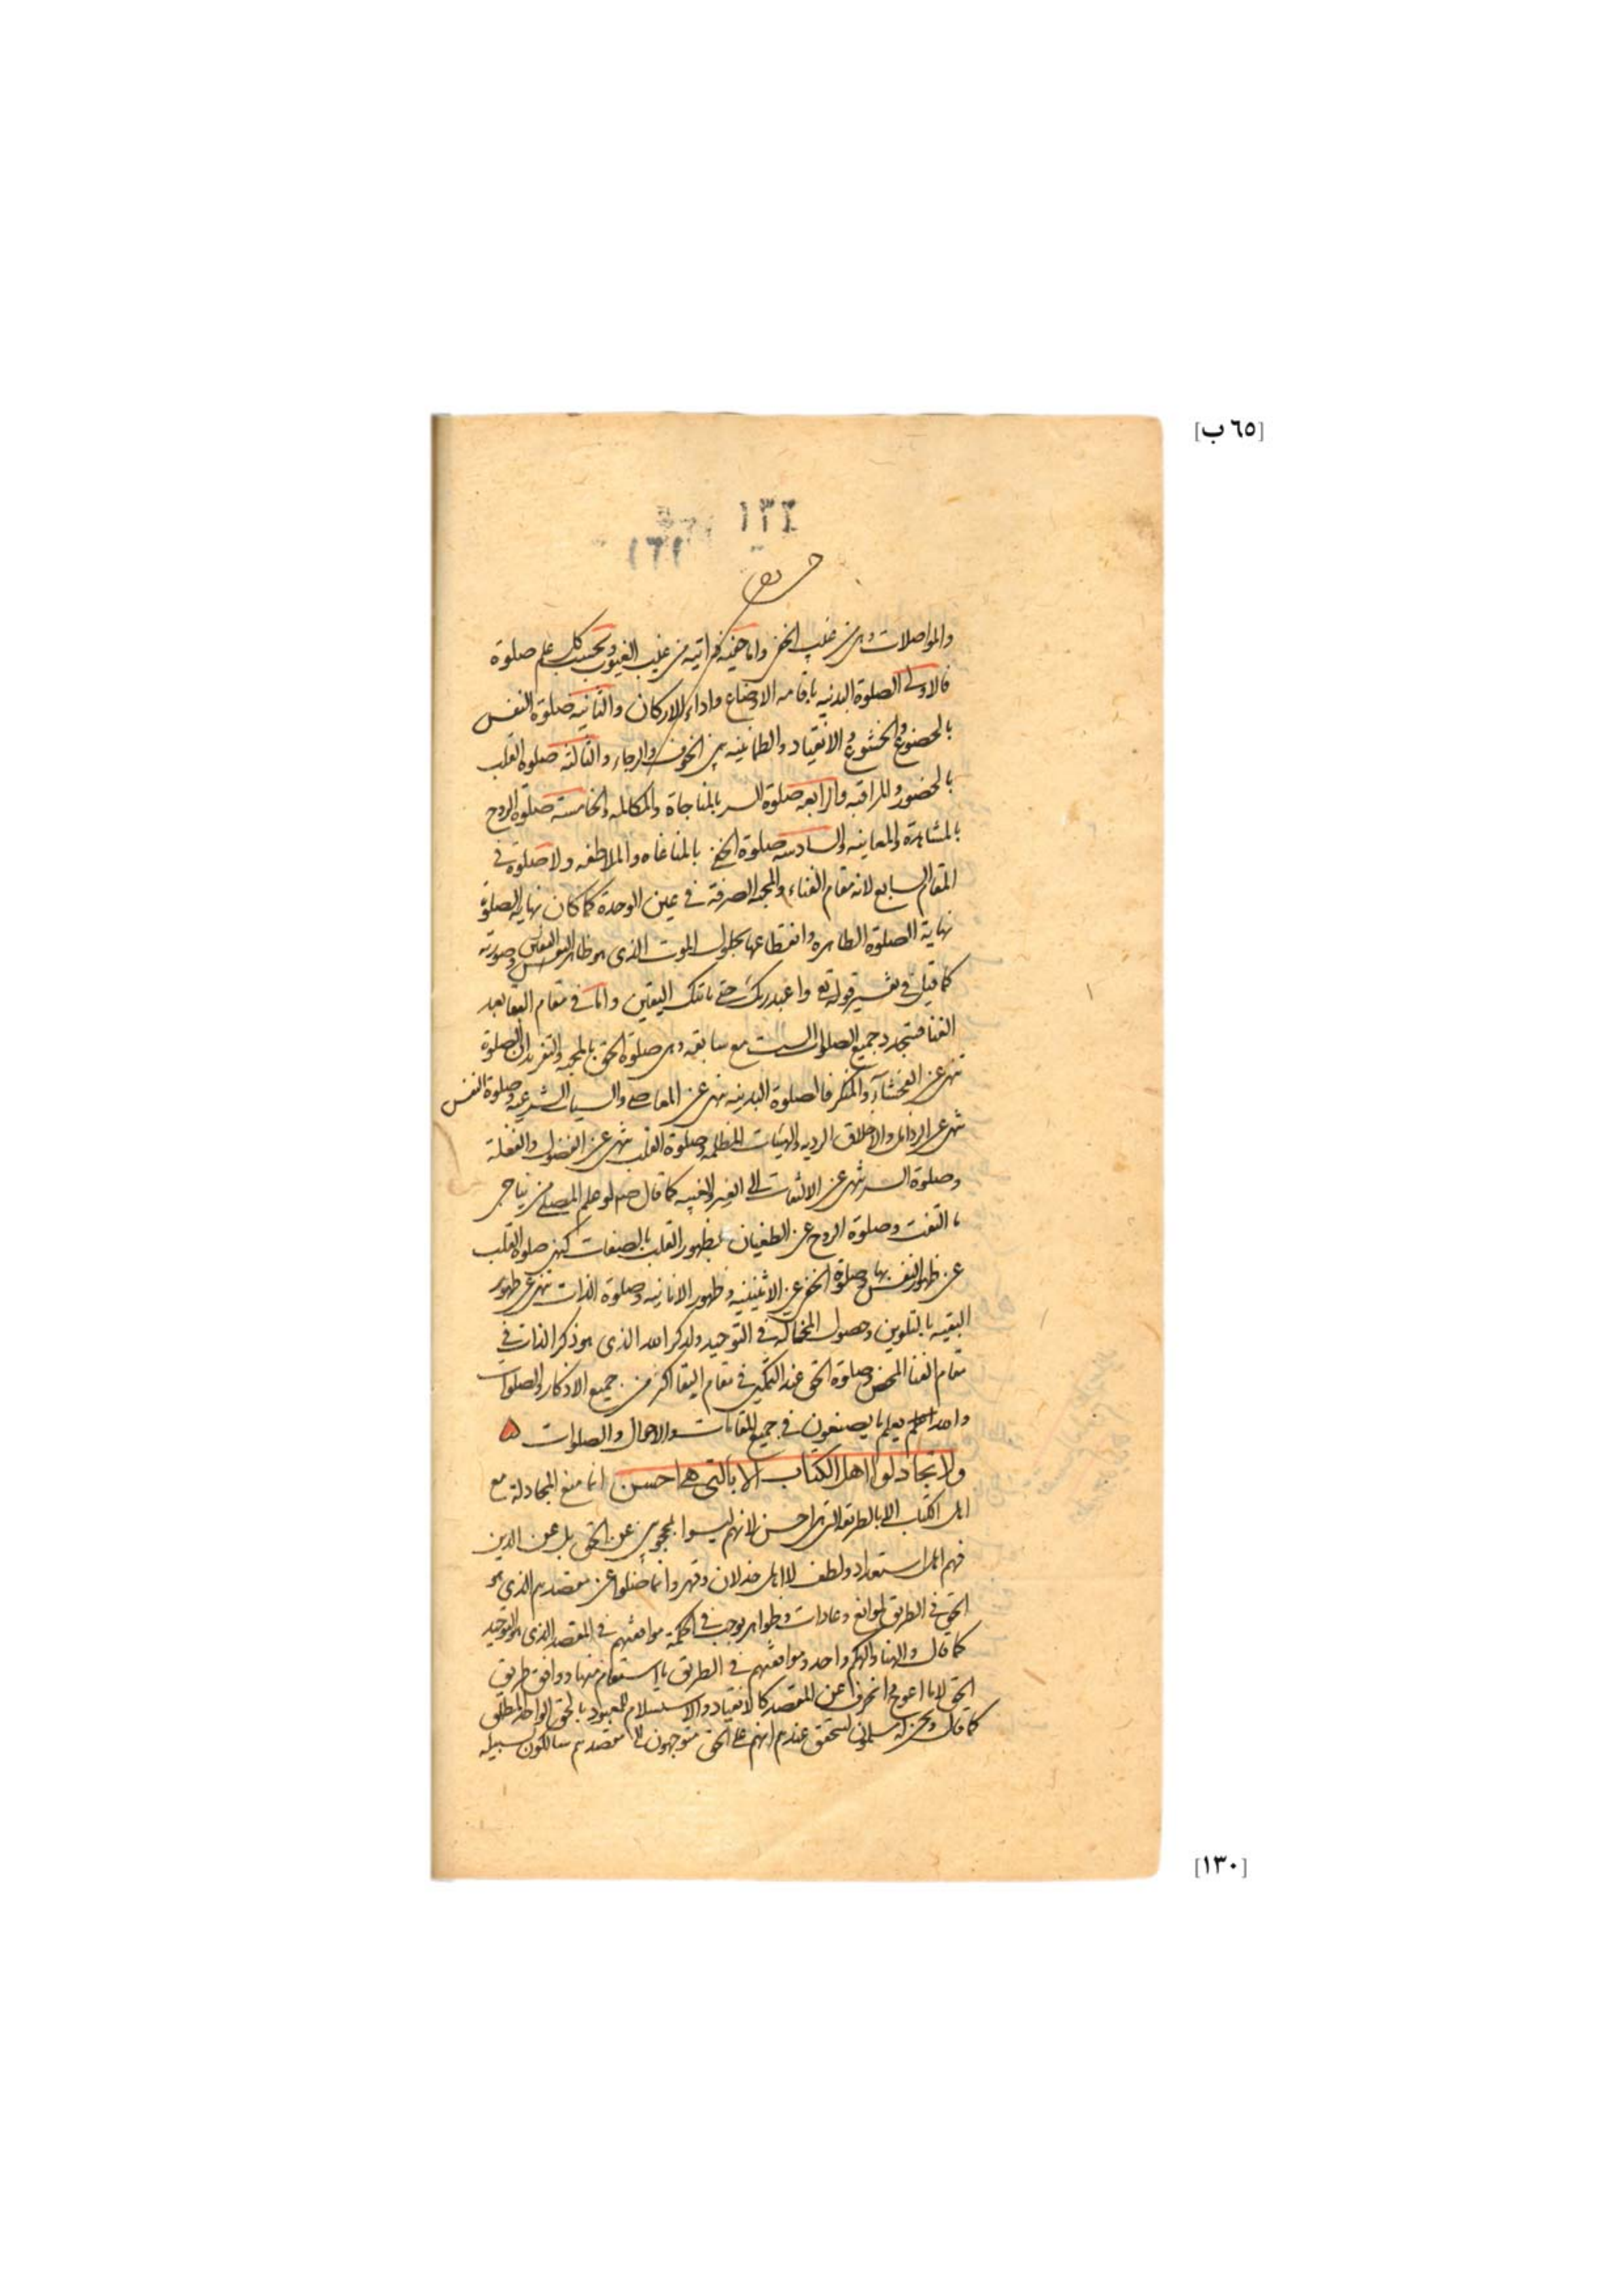 [٦٥ ب]
١٣٤
١٦١
والمواصلات وهي من غيب الخفى واما حقيه ذاتيه من غيب الغيوب وبحسب كل علم صلوة
فالاولى الصلوة البدنيه باقامه الاوضاع واداء الاركان والثانيه صلوة النفس
بالخضوع والخشوع والانقياد والطمانينه بين الخوف والرجاء والثالثه صلوة القلب
بالحضور والمراقبه والرابعه صلوة السر بالمناجاة والمكالمه والخامسه صلوة الروح
بالمشاهدة والمعاينه والسادسه صلوة الخفى بالمناغاه والملاطفه ولا صلوة في
المقام السابع لانه مقام الفناء والمحبه الصرفة في عين الوحدة كما كان نهايه الصلوة
نهاية الصلوة الظاهره وانقطاعها بحلول الموت الذى هو ظاهر اليقين وصورته
كما قيل في تفسير قوله تع واعبد ربك حتى ياتيك اليقين واما في مقام البقا بعد
الفنا فتتجدد جميع الصلوات الست مع سابعه وهي صلوة الحق بالمحبه والتفريد ان الصلوة
تنهى عن الفحشاء والمنكر فالصلوة البدنيه تنهى عن المعاصى والسيات الشرعيه وصلوة النفس
تنهى عن الرذائل والاخلاق الرديه والهيئات المظلمه وصلوة القلب تنهى عن الفضول والغفلة
وصلوة السر تنهى عن الالتفات الى الغير والغيبه كما قال صلم لو علم المصلى من يناجى
ما التفت وصلوة الروح عن الطغيان بظهور القلب بالصفات كنهى صلوة القلب
عن ظهور النفس بها وصلوة الخفى عن الاثنينيه وظهور الانانيه وصلوة الذات تنهى عن ظهور
البقيه بالتلوين وحصول المخالفه في التوحيد ولذكر الله الذى هو ذكر الذات في
مقام الفنا المحض وصلوة الحق عند التمكين في مقام البقا اكبر من جميع الاذكار والصلوات
والله يعلم ما يصنعون في جميع المقامات والاحوال والصلوات
ولا تجادلوا اهل الكتاب الا بالتى هى احسن انما منع المجادلة مع
اهل الكتاب الا بالطريقه التى هى احسن لانهم ليسوا محجوبين عن الحق بل عن الدين
فهم اهل استعداد ولطف لا اهل خذلان وقهر وانما ضلوا عن مقصدهم الذى هو
الحق في الطريق لموانع وعادات وظواهر يوجب في الحكمة موافقتهم في المقصد الذى هو التوحيد
كما قال والهنا والهكم واحد وموافقتهم في الطريق ما استقام منها ووافق طريق
الحق لا ما اعوج وانحرف عن المقصد كالانقياد والاستسلام للمعبود بالحق الواحد المطلق
كما قال ونحن له مسلمون ليتحقق عندهم انهم على الحق متوجهون الى مقصدهم سالكون لسبيله
[١٣٠]